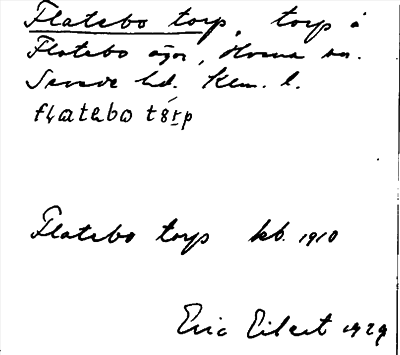 Flatebo torp, torp å
Flatebo ägor, Horna sn.
hd. l.
flatebo tórp
Flatebo torp kb. 1910
Eric Eilert 1929